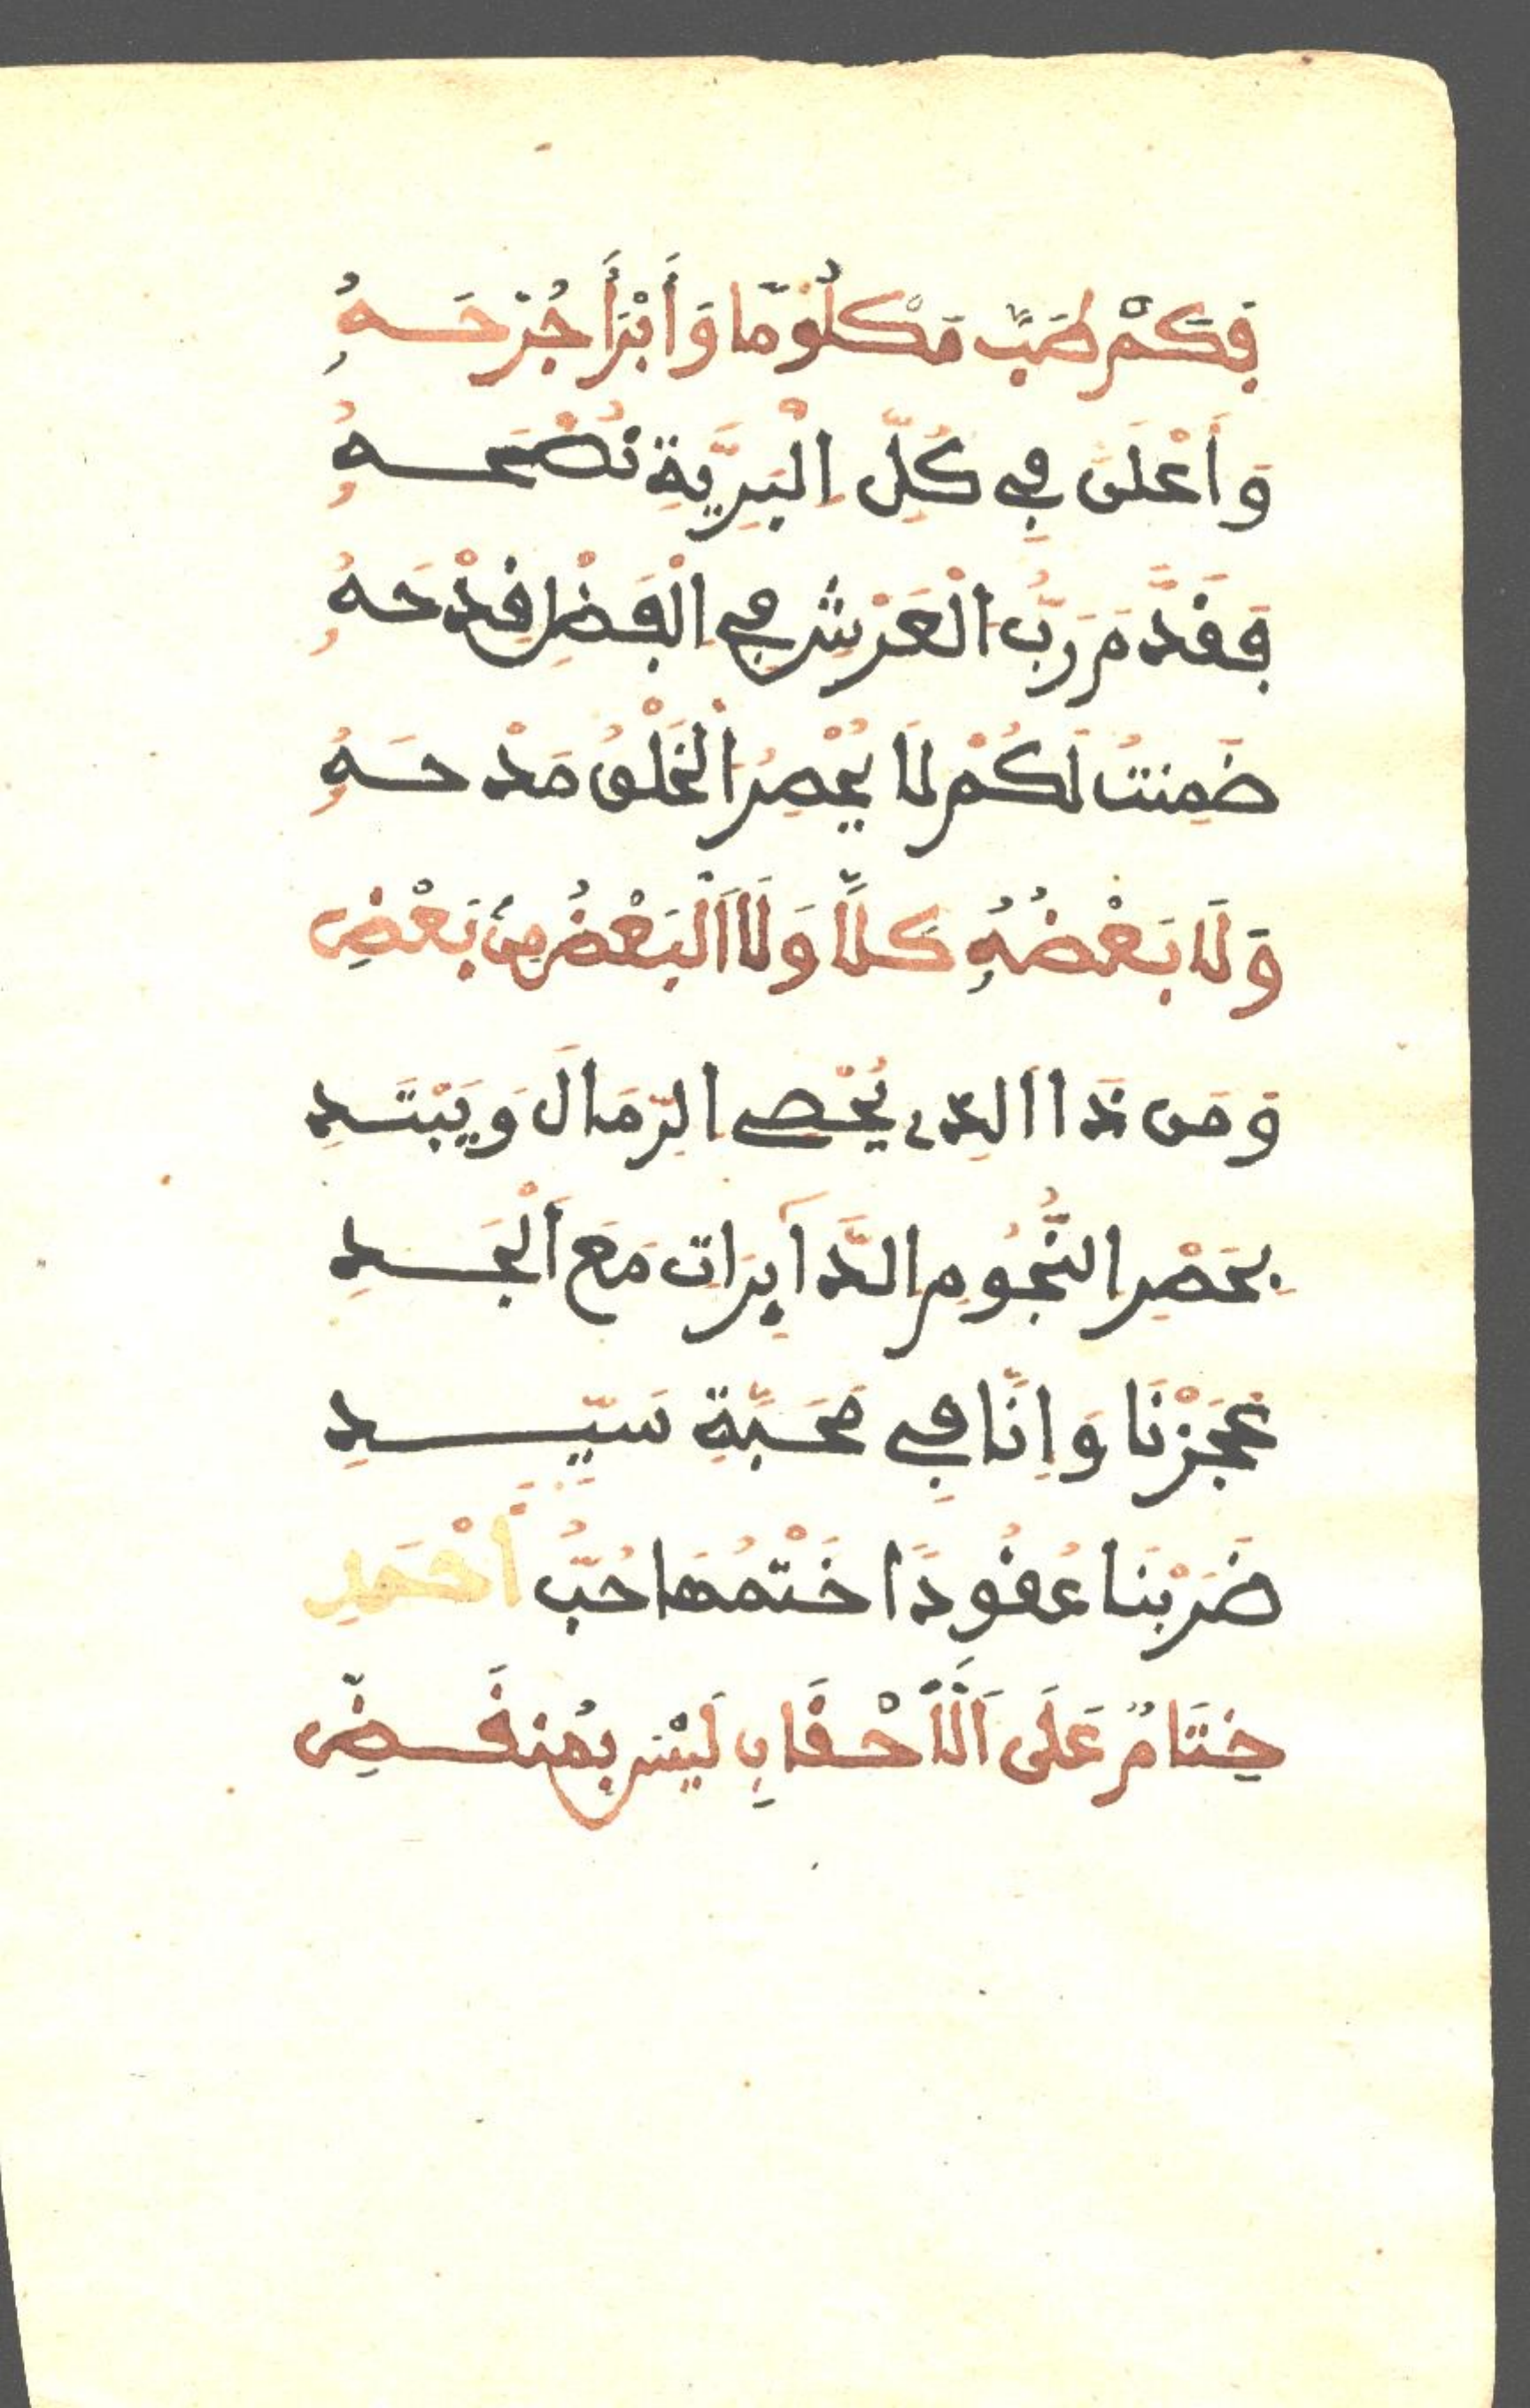 فَكَمْ طَبَّ مَكْلُومًا وَأَبْرَأَ جُرْحَهُ
وَأَعْلَى فِي كُلِّ الْبَرِيَّةِ نُصْحَهُ
فَقَدَّمَ رَبُّ الْعَرْشِ فِي الْفَضْلِ قِدْحَهُ
ضَمِنتُ لَكُمْ لَا يُحْصِرُ الْخَلْقُ مَدْحَهُ
وَلَا بَعْضُهُ كَلَّا وَلَا الْبَعْضُ مِنْ بَعْضِ
وَمَن ذَا الذِي يُحْصِي الرِّمَالَ وَيَبْتَدِ
بِحَصْرِ النُّجُومِ الدَّآيِرَاتِ مَعَ الْجَدِ
عَجَزْنَا وَإِنَّا فِي مَحَبَّةِ سَيِّدِ
ضَرَبْنَا عُقُودًا خَتْمُهَا حُبُّ أَحْمَدِ
خِتَامٌ عَلَى الَأَحْقَابِ لَيْسَ بِمُنفَضِّ